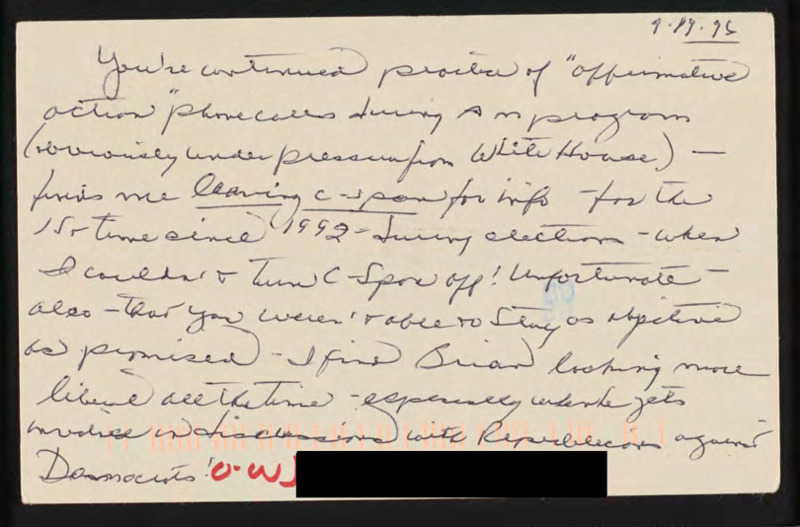 9-19-96
You're continued practice of "affirmative
action" phone calls during A M program
(obviously under pressure from White House) —
finds me leaving C-Span for info - for the
1st time since 1992 - during elections - when
I couldn't turn C-Span off! Unfortunate -
also - that you weren't able to stay as objective
as promised - I find Brian looking more
liberal all the time - especially when he gets
involved in discussions with Republicans against
Democrats! O-W